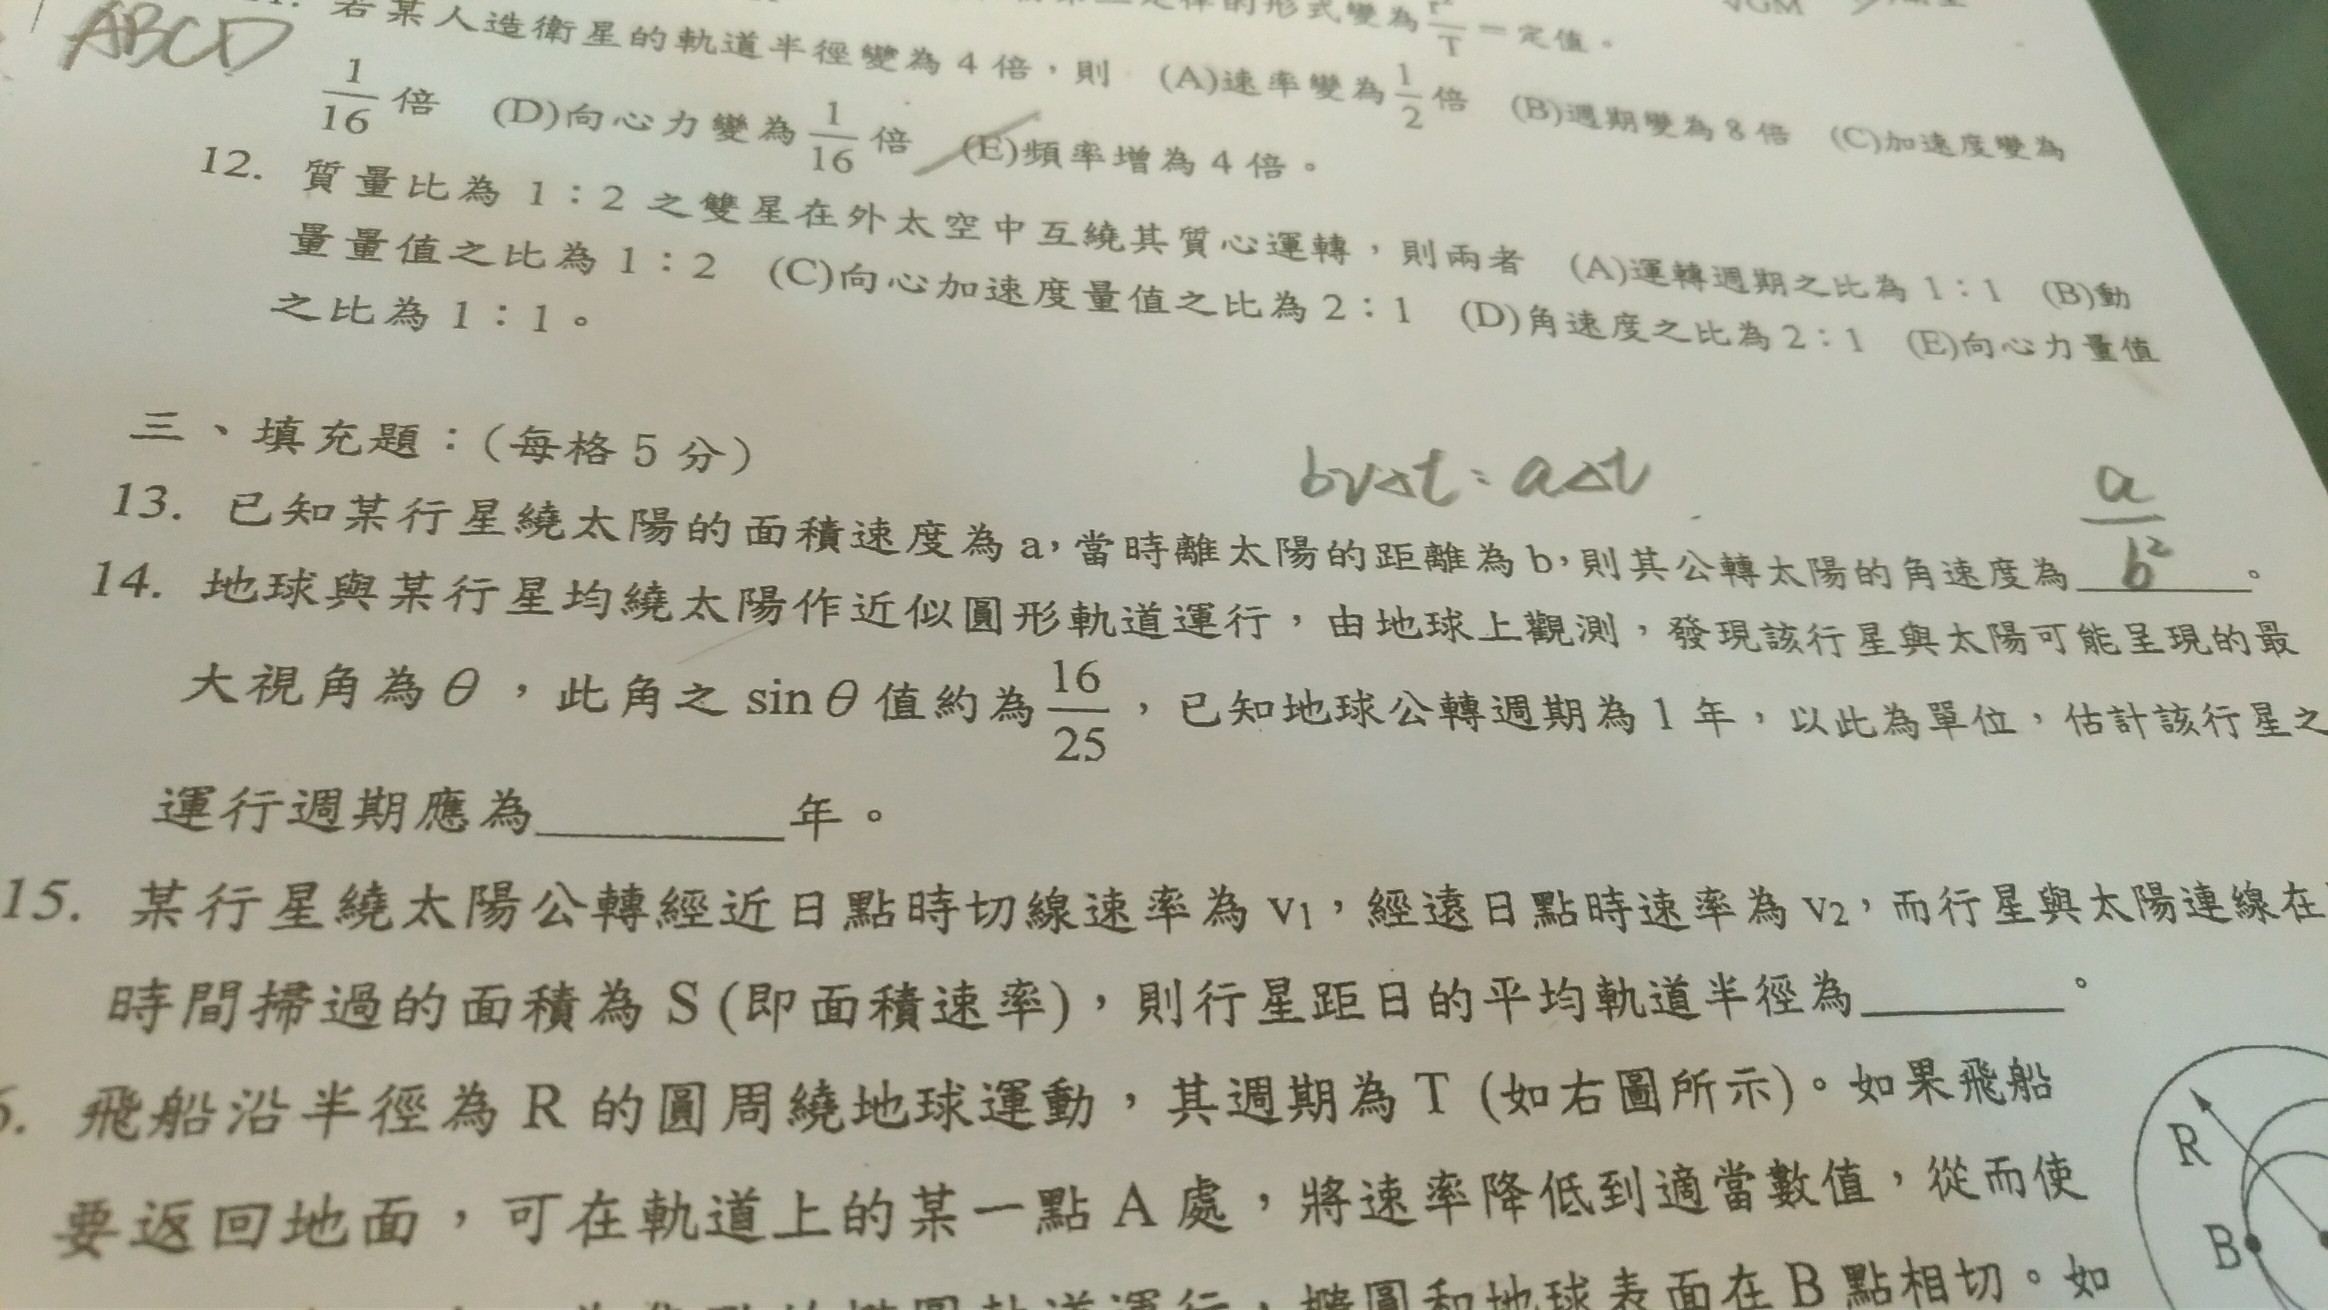 ABCD
若某人造衛星的軌道半徑變為 4 倍，則 (A)速率變為 1/2 倍 (B)週期變為 8 倍 (C)加速度變為
1/16 倍 (D)向心力變為 1/16 倍 (E)頻率增為 4 倍。
12. 質量比為 1：2 之雙星在外太空中互繞其質心運轉，則兩者 (A)運轉週期之比為 1：1 (B)動
量量值之比為 1：2 (C)向心加速度量值之比為 2：1 (D)角速度之比為 2：1 (E)向心力量值
之比為 1：1。
三、填充題：(每格 5 分)
bv△t = a△t
13. 已知某行星繞太陽的面積速度為 a，當時離太陽的距離為 b，則其公轉太陽的角速度為 a/b² 。
14. 地球與某行星均繞太陽作近似圓形軌道運行，由地球上觀測，發現該行星與太陽可能呈現的最
大視角為 θ，此角之 sinθ 值約為 16/25，已知地球公轉週期為 1 年，以此為單位，估計該行星之
運行週期應為________年。
15. 某行星繞太陽公轉經近日點時切線速率為 v₁，經遠日點時速率為 v₂，而行星與太陽連線在
時間掃過的面積為 S (即面積速率)，則行星距日的平均軌道半徑為________。
飛船沿半徑為 R 的圓周繞地球運動，其週期為 T (如右圖所示)。如果飛船
要返回地面，可在軌道上的某一點 A 處，將速率降低到適當數值，從而使
橢圓和地球表面在 B 點相切。如
R
B